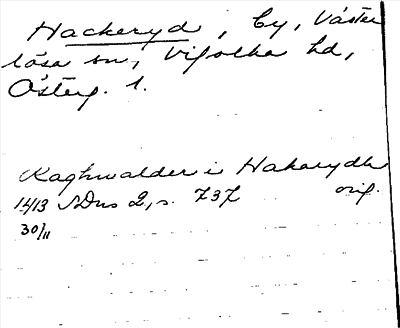 Hackeryd, by, Väster
lösa sn, Vifolka hd,
Österg. l.
Raghwalder i Hakarydh
1413 SDns 2, s. 737 orig.
30/11